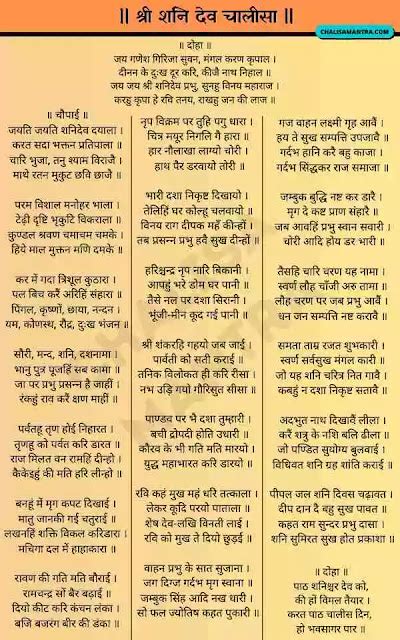 || श्री शनि देव चालीसा ||
CHALISAMANTRA.COM
॥ दोहा ॥
जय गणेश गिरिजा सुवन, मंगल करण कृपाल ।
दीनन के दुःख दूर करि, कीजै नाथ निहाल ॥
जय जय श्री शनिदेव प्रभु, सुनहु विनय महाराज ।
करहु कृपा हे रवि तनय, राखहु जन की लाज ॥
॥ चौपाई ॥
जयति जयति शनिदेव दयाला ।
करत सदा भक्तन प्रतिपाला ॥
चारि भुजा, तनु श्याम विराजै ।
माथे रतन मुकुट छवि छाजै ॥
परम विशाल मनोहर भाला ।
टेढ़ी दृष्टि भृकुटि विकराला ॥
कुण्डल श्रवण चमाचम चमके ।
हिये माल मुक्तन मणि दमके ॥
कर में गदा त्रिशूल कुठारा ।
पल बिच करैं अरिहिं संहारा ॥
पिंगल, कृष्णों, छाया, नन्दन ।
यम, कोणस्थ, रौद्र, दुःख भंजन ॥
सौरी, मन्द, शनि, दशनामा ।
भानु पुत्र पूजहिं सब कामा ॥
जा पर प्रभु प्रसन्न है जाहीं ।
रंकहुं राव करैं क्षण माहीं ॥
पर्वतहू तृण होई निहारत ।
तृणहू को पर्वत करि डारत ॥
राज मिलत वन रामहिं दीन्हो ।
कैकेइहुं की मति हरि लीन्हो ॥
बनहूं में मृग कपट दिखाई ।
मातु जानकी गई चतुराई ॥
लखनहिं शक्ति विकल करिडारा ।
मचिगा दल में हाहाकारा ॥
रावण की गति मति बौराई ।
रामचन्द्र सों बैर बढ़ाई ॥
दियो कीट करि कंचन लंका ।
बजि बजरंग बीर की डंका ॥
नृप विक्रम पर तुहि पगु धारा ।
चित्र मयूर निगलि गै हारा ॥
हार नौलाखा लाग्यो चोरी ।
हाथ पैर डरवायो तोरी ॥
भारी दशा निकृष्ट दिखायो ।
तेलिहिं घर कोल्हू चलवायो ॥
विनय राग दीपक महँ कीन्हों ।
तब प्रसन्न प्रभु हवै सुख दीन्हों ॥
हरिश्चन्द्र नृप नारि बिकानी ।
आपहुं भरे डोम घर पानी ॥
तैसे नल पर दशा सिरानी ।
भूंजी-मीन कूद गई पानी ॥
श्री शंकरहि गहयो जब जाई ।
पार्वती को सती कराई ॥
तनिक विलोकत ही करि रीसा ।
नभ उड़ि गयो गौरिसुत सीसा ॥
पाण्डव पर भै दशा तुम्हारी ।
बची द्रोपदी होति उधारी ॥
कौरव के भी गति मति मारयो ।
युद्ध महाभारत करि डारयो ॥
रवि कहं मुख महं धरि तत्काला ।
लेकर कूदि परयो पाताला ॥
शेष देव-लखि विनती लाई ।
रवि को मुख ते दियो छुड़ई ॥
वाहन प्रभु के सात सुजाना ।
जग दिग्ज गर्दभ मृग स्वाना ।
जम्बुक सिंह आदि नख धारी ।
सो फल ज्योतिष कहत पुकारी ॥
गज वाहन लक्ष्मी गृह आवैं ।
हय ते सुख सम्पत्ति उपजावै ॥
गर्दभ हानि करै बहु काजा ।
गर्दभ सिंद्धकर राज समाजा ॥
जम्बुक बुद्धि नष्ट कर डारै ।
मृग दे कष्ट प्राण संहारै ॥
जब आवहिं प्रभु स्वान सवारी ।
चोरी आदि होय डर भारी ॥
तैसहि चारि चरण यह नामा ।
स्वर्ण लौह चाँजी अरु तामा ॥
लौह चरण पर जब प्रभु आवैं ।
धन जन सम्पत्ति नष्ट करावै ॥
समता ताम्र रजत शुभकारी ।
स्वर्ण सर्वसुख मंगल कारी ॥
जो यह शनि चरित्र नित गावै ।
कबहुं न दशा निकृष्ट सतावै ॥
अदभुत नाथ दिखावैं लीला ।
करैं शत्रु के नशि बलि ढीला ॥
जो पण्डित सुयोग्य बुलवाई ।
विचिवत शनि ग्रह शांति कराई ॥
पीपल जल शनि दिवस चढ़ावत ।
दीप दान दै बहु सुख पावत ॥
कहत राम सुन्दर प्रभु दासा ।
शनि सुमिरत सुख होत प्रकाशा ॥
॥ दोहा ॥
पाठ शनिश्चर देव को,
की हों विमल तैयार ।
करत पाठ चालीस दिन,
हो भवसागर पार ॥